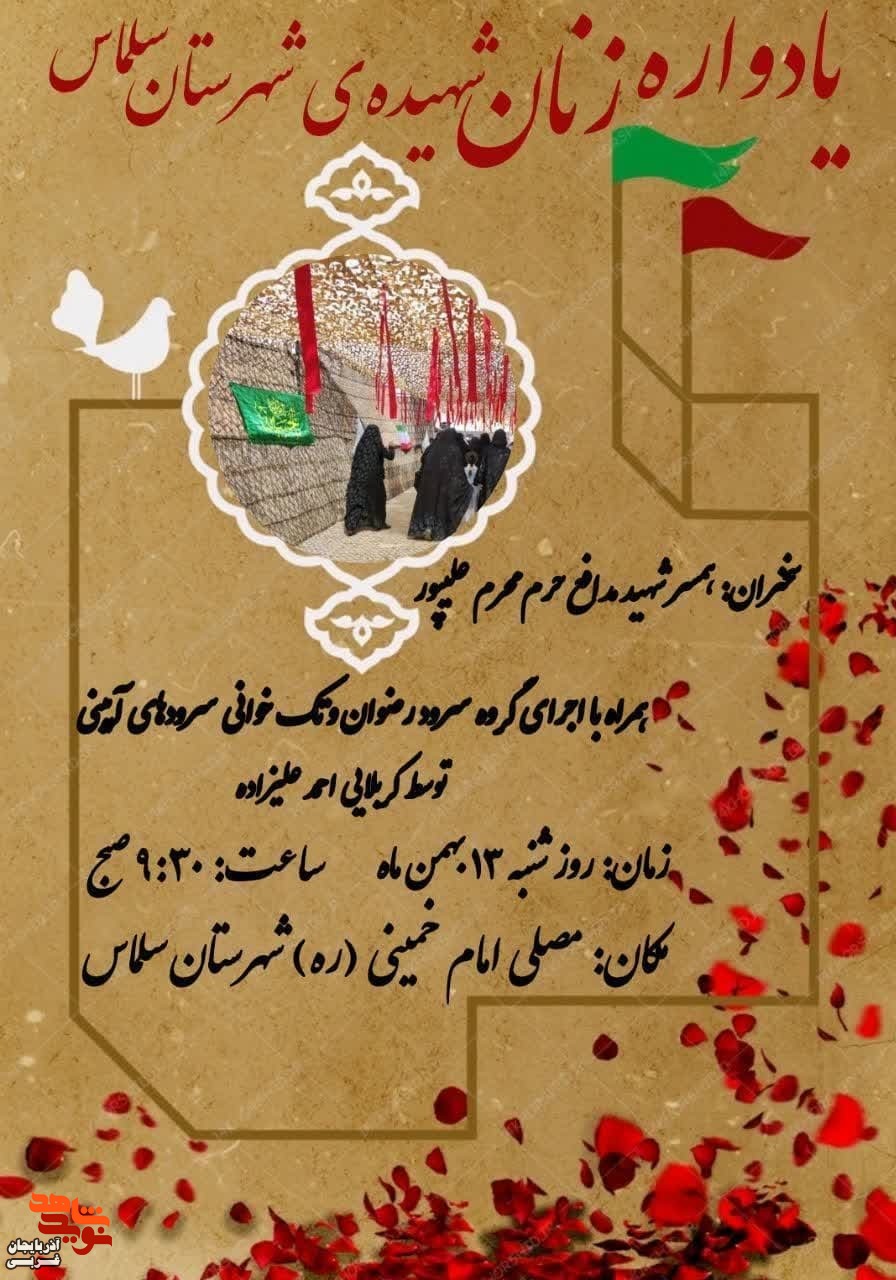 یادواره زنان شهیده ی شهرستان سلماس
سخنران: همسر شهید مدافع حرم محرم علیپور
همراه با اجرای گروه سرود رضوان و تک خوانی سرودهای آیینی
توسط کربلایی احمد علیزاده
زمان: روز شنبه ۱۳ بهمن ماه ساعت: ۹:۳۰ صبح
مکان: مصلی امام خمینی (ره) شهرستان سلماس
نوید شاهد
آذربایجان
غربی